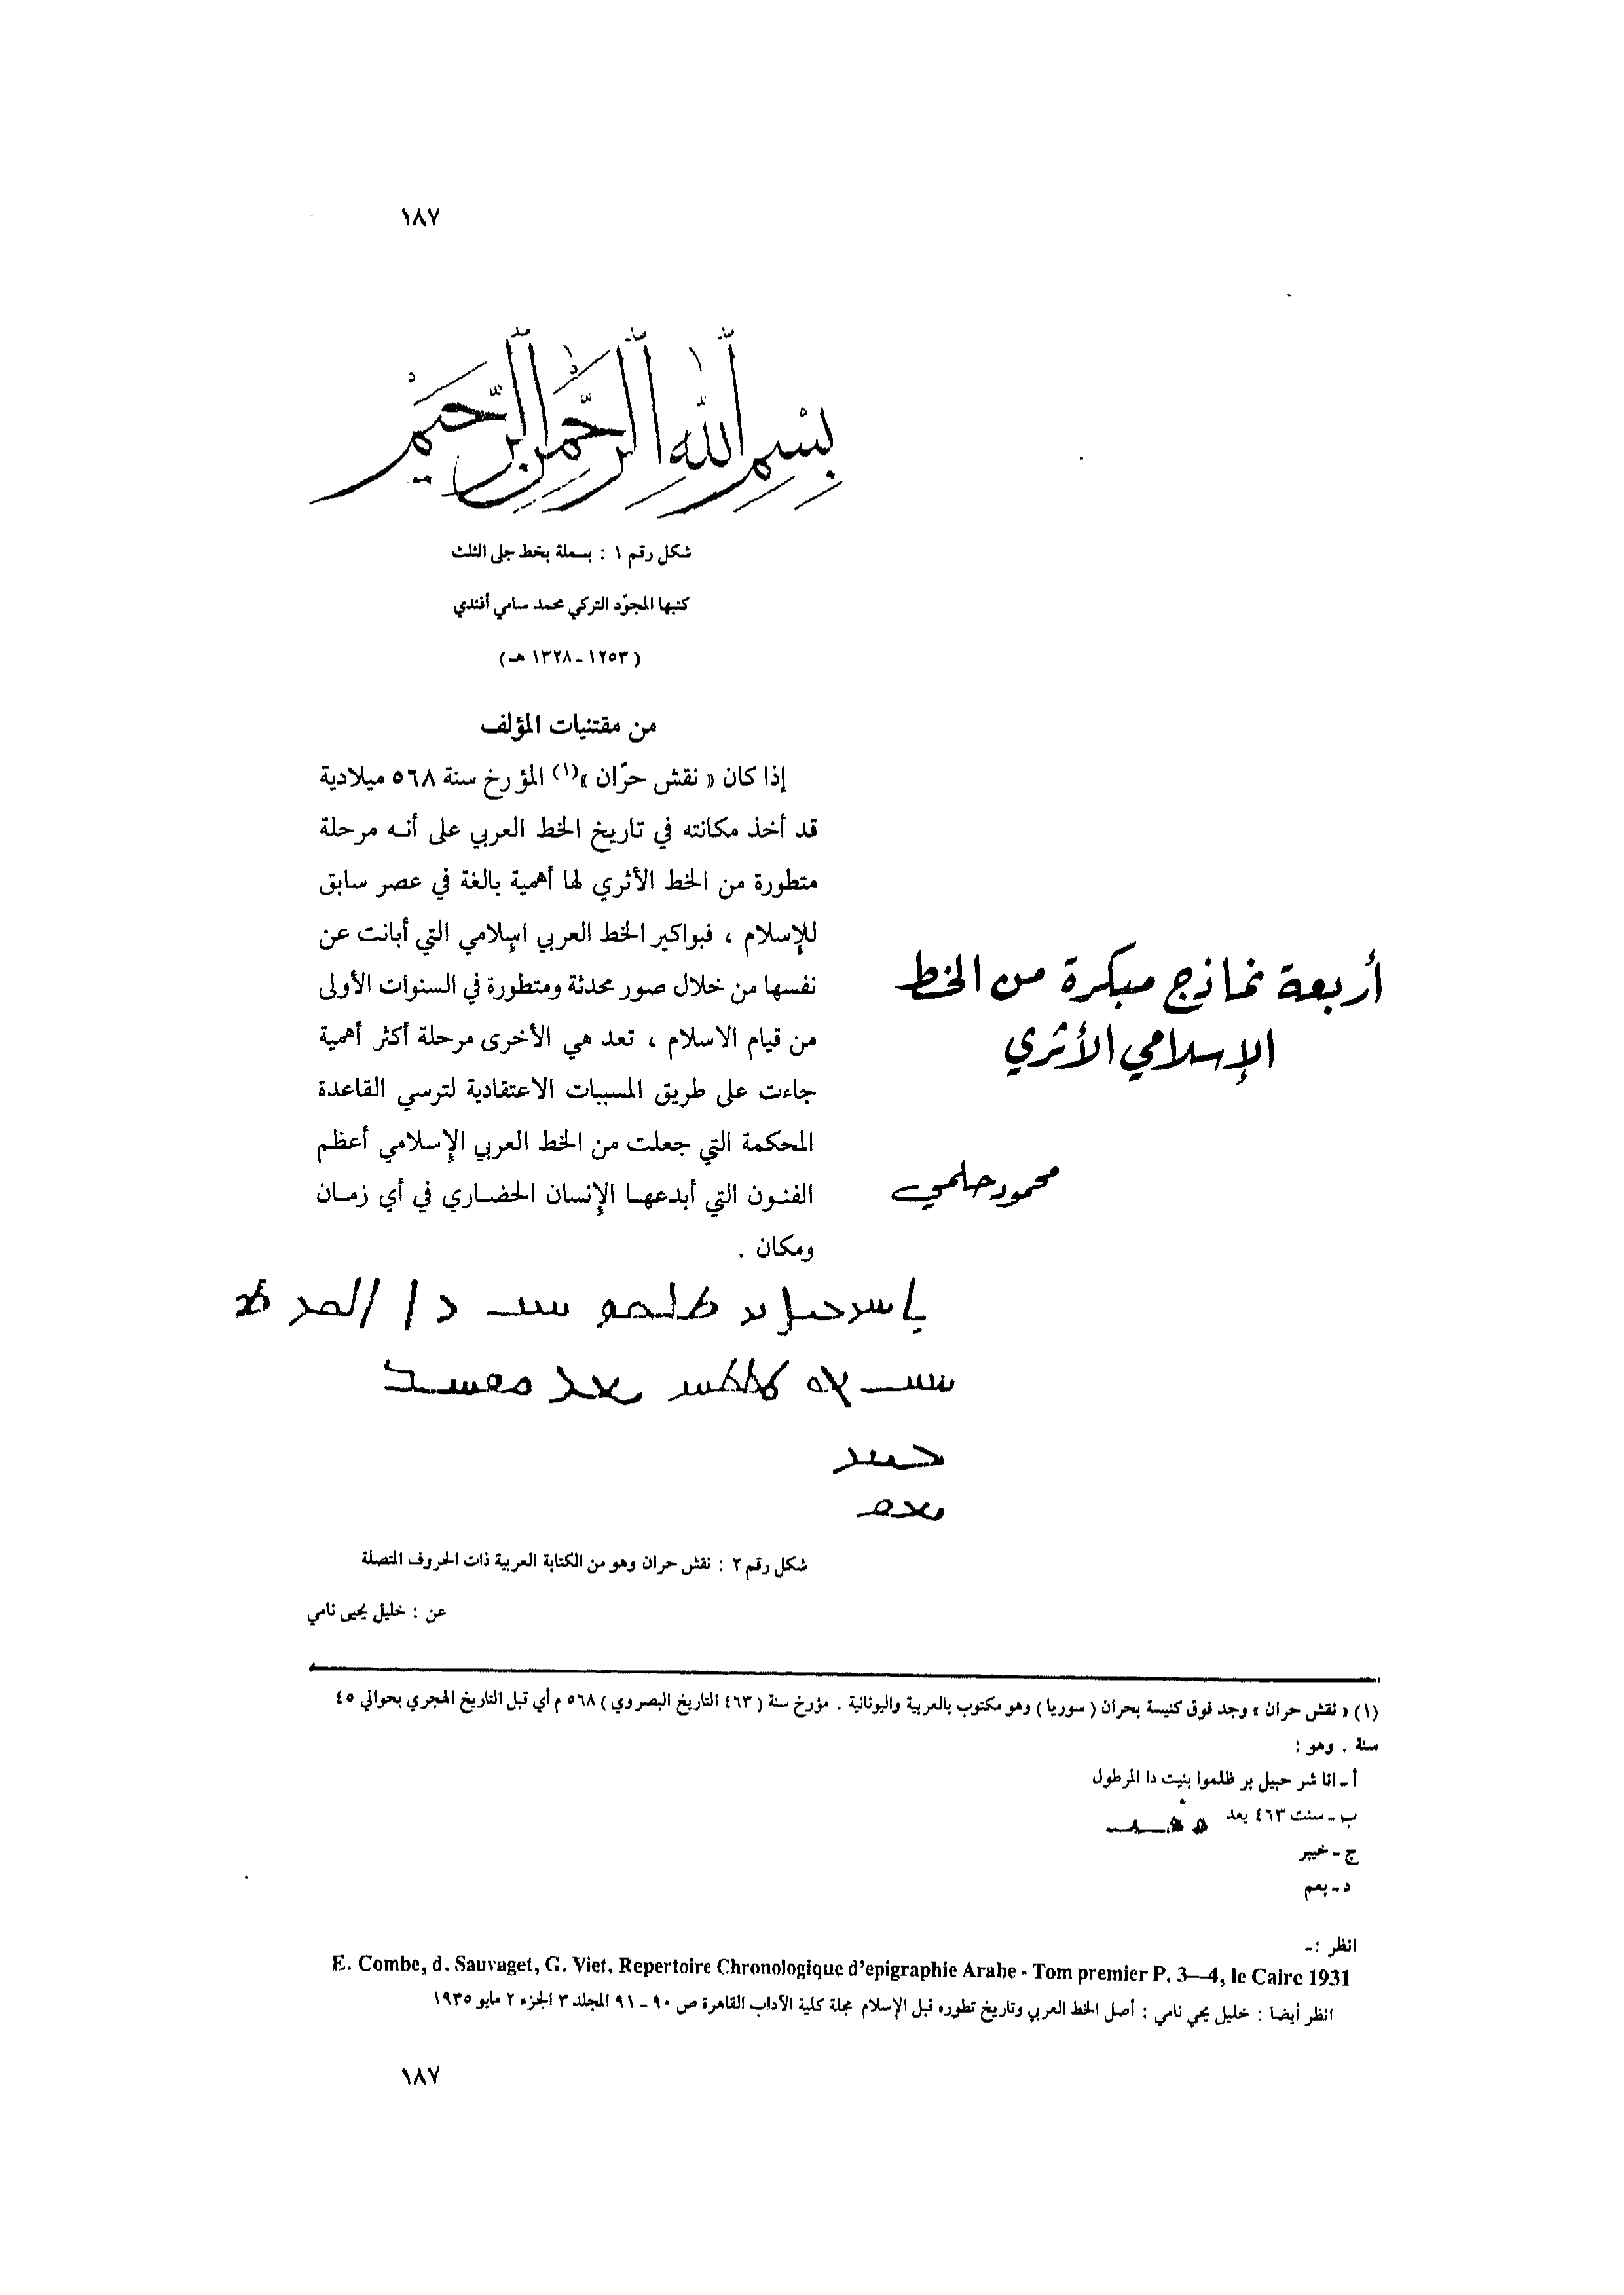 ١٨٧
بِسْمِ اللهِ الرَّحْمٰنِ الرَّحِيْمِ
شكل رقم ١ : بسملة بخط جلى الثلث
كتبها المجوّد التركي محمد سامي أفندي
( ١٢٥٣ ـ ١٣٢٨ هـ )
من مقتنيات المؤلف
أربعة نماذج مبكرة من الخط
الإسلامي الأثري
محمود حلمي
إذا كان « نقش حرّان »(١) المؤرخ سنة ٥٦٨ ميلادية
قد أخذ مكانته في تاريخ الخط العربي على أنه مرحلة
متطورة من الخط الأثري لها أهمية بالغة في عصر سابق
للإسلام ، فبواكير الخط العربي اسلامي التي أبانت عن
نفسها من خلال صور محدثة ومتطورة في السنوات الأولى
من قيام الاسلام ، تعد هي الأخرى مرحلة أكثر أهمية
جاءت على طريق المسببات الاعتقادية لترسي القاعدة
المحكمة التي جعلت من الخط العربي الإسلامي أعظم
الفنون التي أبدعها الإنسان الحضاري في أي زمان
ومكان .
شكل رقم ٢ : نقش حران وهو من الكتابة العربية ذات الحروف المتصلة
عن : خليل يحيى نامي
(١) « نقش حران » وجد فوق كنيسة بحران ( سوريا ) وهو مكتوب بالعربية واليونانية . مؤرخ سنة ( ٤٦٣ التاريخ البصروي ) ٥٦٨ م أي قبل التاريخ الهجري بحوالي ٤٥
سنة . وهو :
أ ـ انا شر حبيل بر ظلموا بنيت دا المرطول
ب ـ سنت ٤٦٣ بعد
ج ـ خيبر
د ـ بعم
انظر :ـ
E. Combe, d. Sauvaget, G. Viet, Repertoire Chronologique d'epigraphie Arabe - Tom premier P. 3—4, le Caire 1931
انظر أيضا : خليل يحي نامي : أصل الخط العربي وتاريخ تطوره قبل الإسلام مجلة كلية الآداب القاهرة ص ٩٠ ـ ٩١ المجلد ٣ الجزء ٢ مايو ١٩٣٥
١٨٧